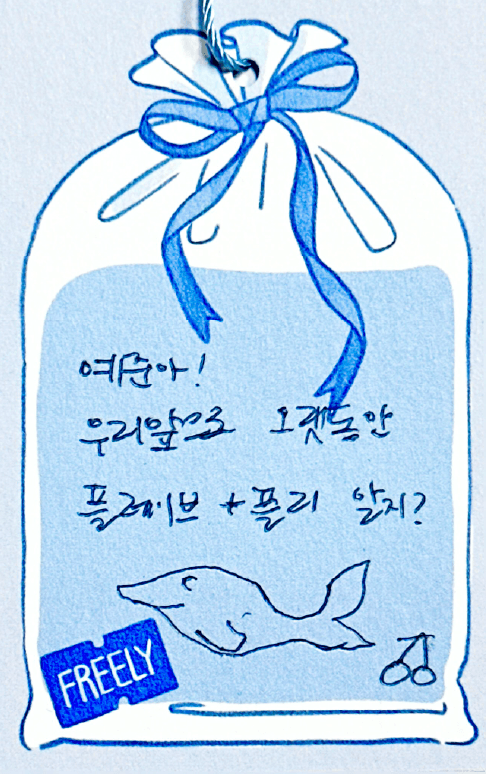 예준아!
우리앞으로 오랫동안
플레이브 + 플리 알지?
FREELY